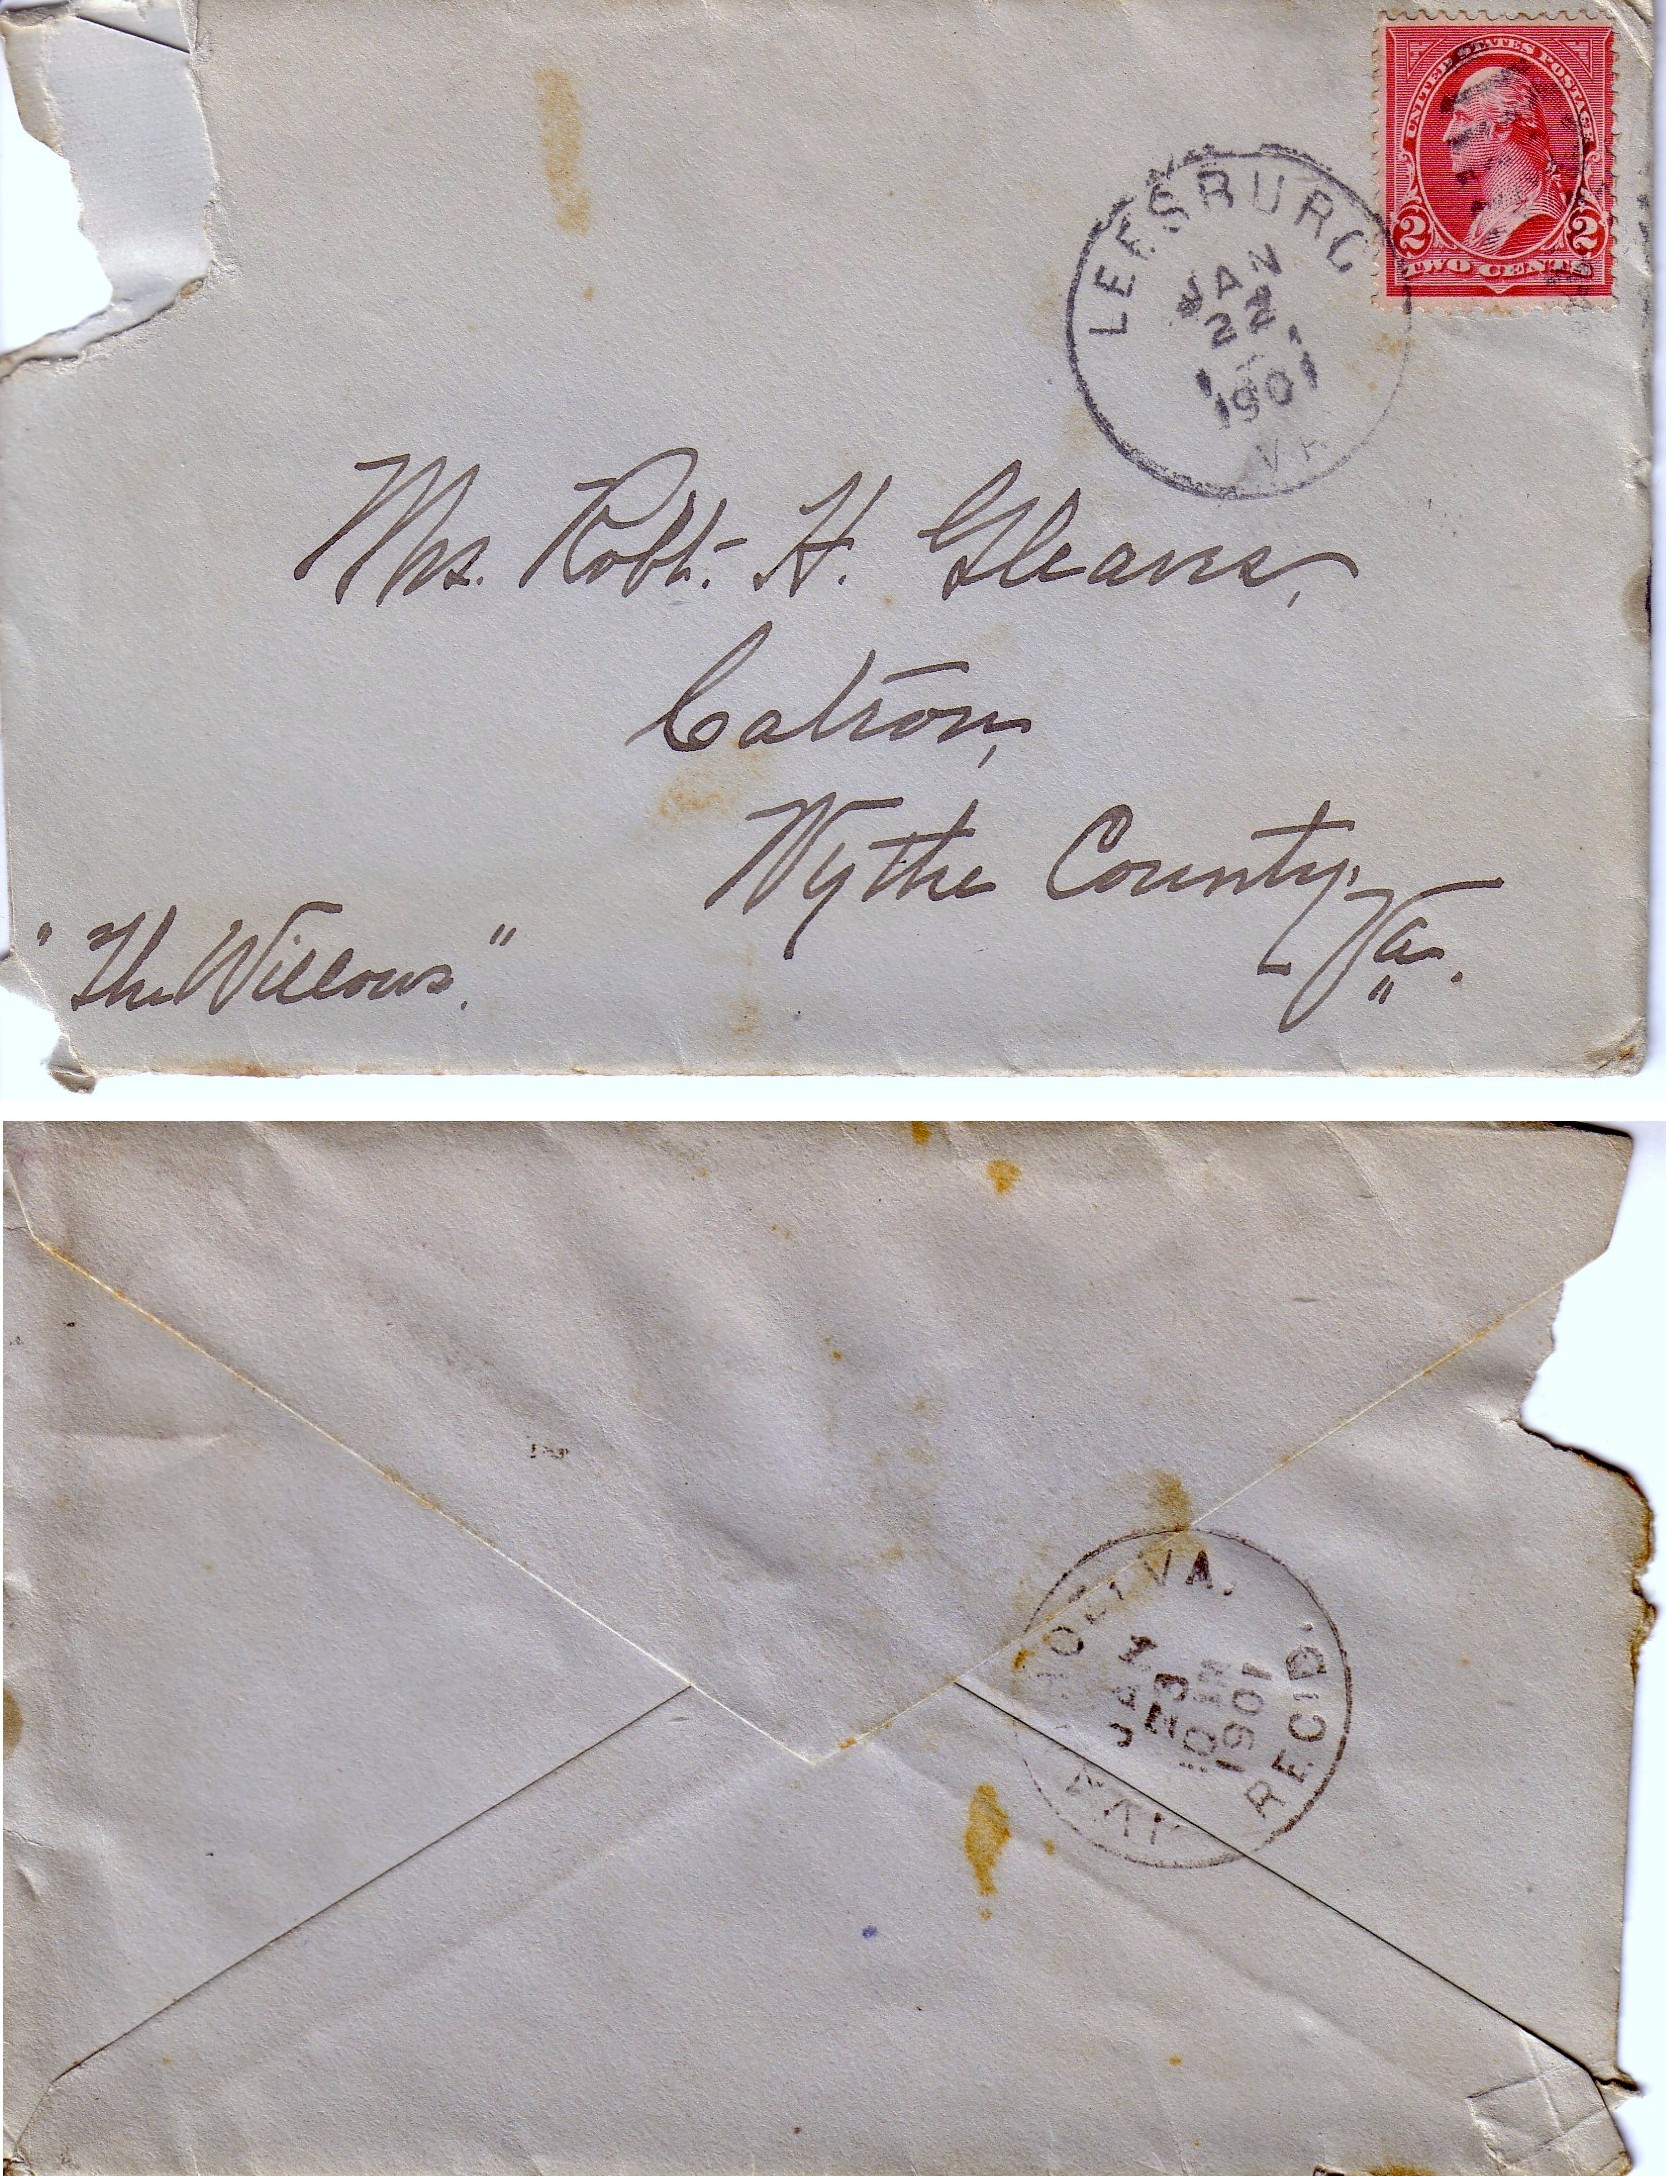 UNITED STATES POSTAGE
2 2
TWO CENTS
LEESBURG
JAN
22
1901
VA
Mrs. Robt. H. Gleaves,
Catron,
Wythe County,
Va.
"The Willows."
VA.
JAN
23
10 AM
1901
REC'D.